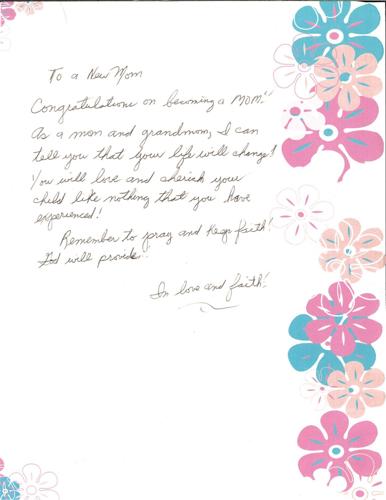 To a New Mom
Congratulations on becoming a MOM!!
As a mom and grandmom, I can
tell you that your life will change!
You will love and cherish your
child like nothing that you have
experienced!
Remember to pray and keep faith!
God will provide.
In love and faith!